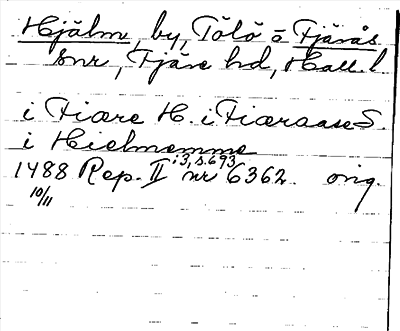 Hjälm, by, Tölö o Fjärås
snr, Fjäre hd, Hall. l
i Fiære H. i Fiæraase S.
i Hielmemme
1488 Rep. II i 3, s. 693 nr 6362. orig.
10/11